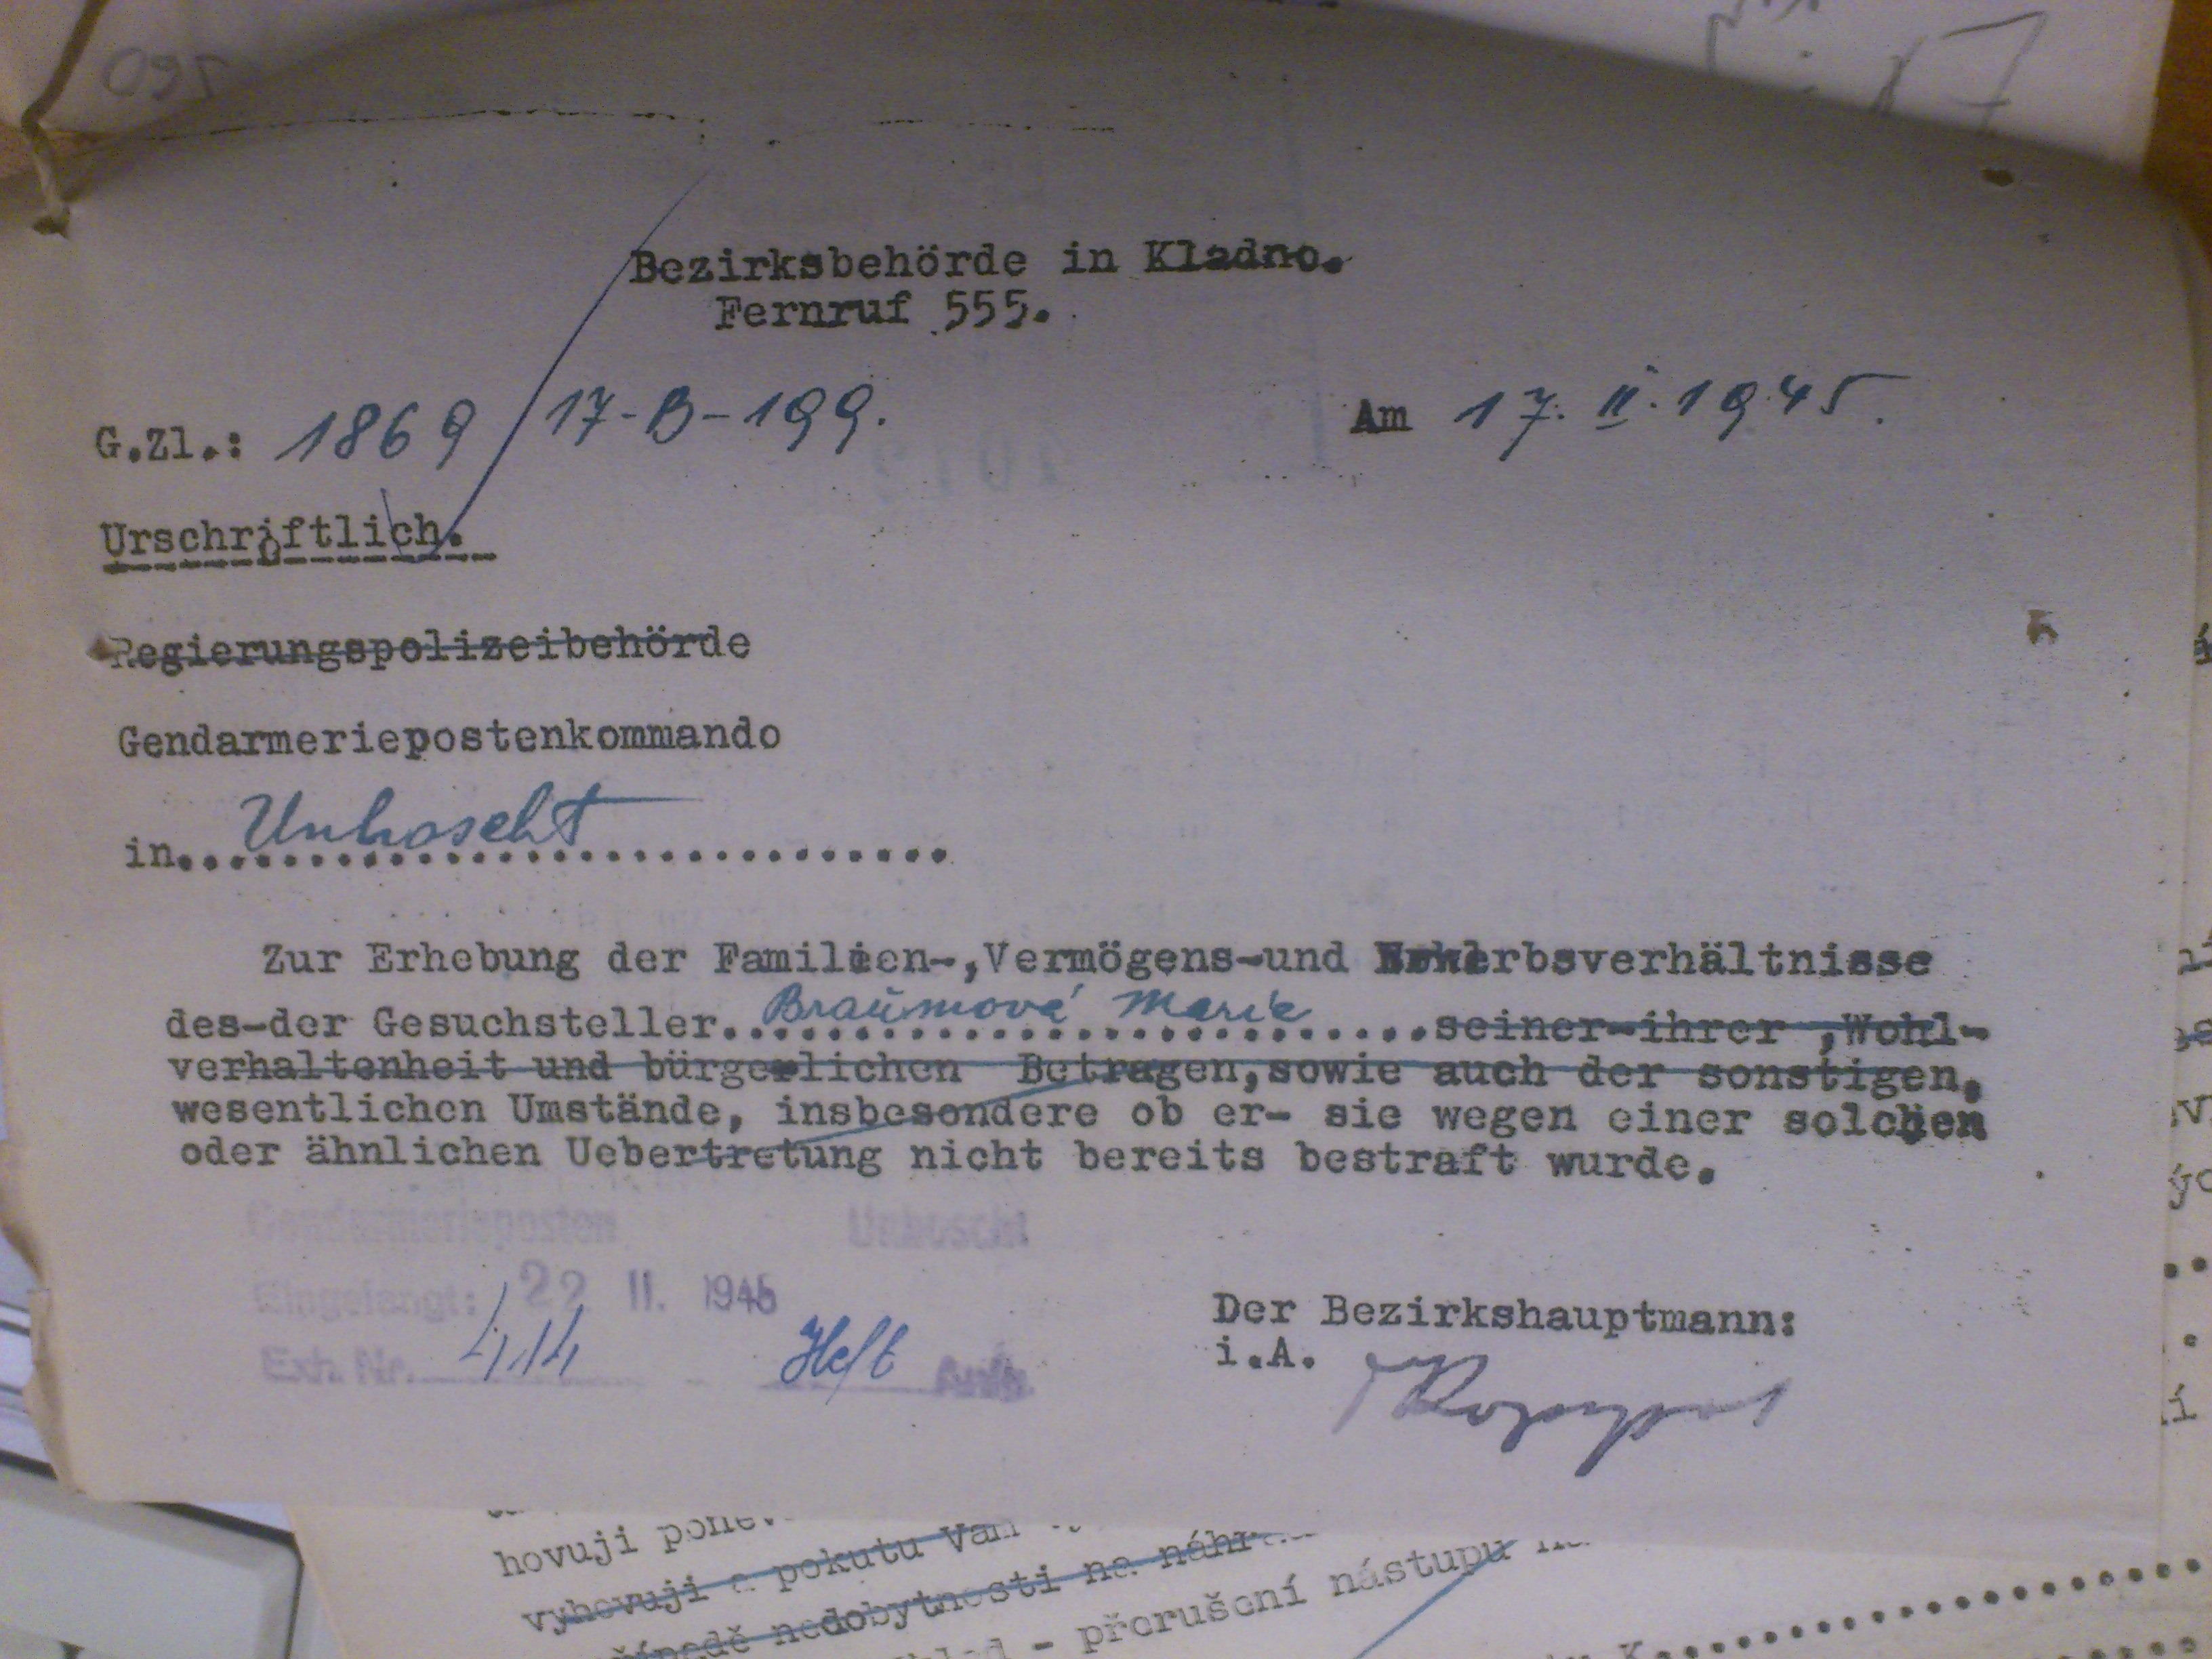 Bezirksbehörde in Kladno.
Fernruf 555.
G.Zl.: 1869/17-B-199. Am 17. II. 1945.
Urschriftlich.
Regierungspolizeibehörde
Gendarmeriepostenkommando
in Unhoscht..............................
Zur Erhebung der Familien-,Vermögens-und Erwerbsverhältnisse
des-der Gesuchsteller... Marie ...seiner-ihrer ,Wohl-
verhaltenheit und bürgerlichen Betragen,sowie auch der sonstigen,
wesentlichen Umstände, insbesondere ob er- sie wegen einer solchen
oder ähnlichen Uebertretung nicht bereits bestraft wurde.
Gendarmerieposten Unhoscht
Eingelangt: 22 II. 1945
Exh. Nr. 414 Heft
Der Bezirkshauptmann:
i.A.
hovuji
vyhovuji a pokutu Vám
nedobytnosti na
- přerušení nástupu
K...............